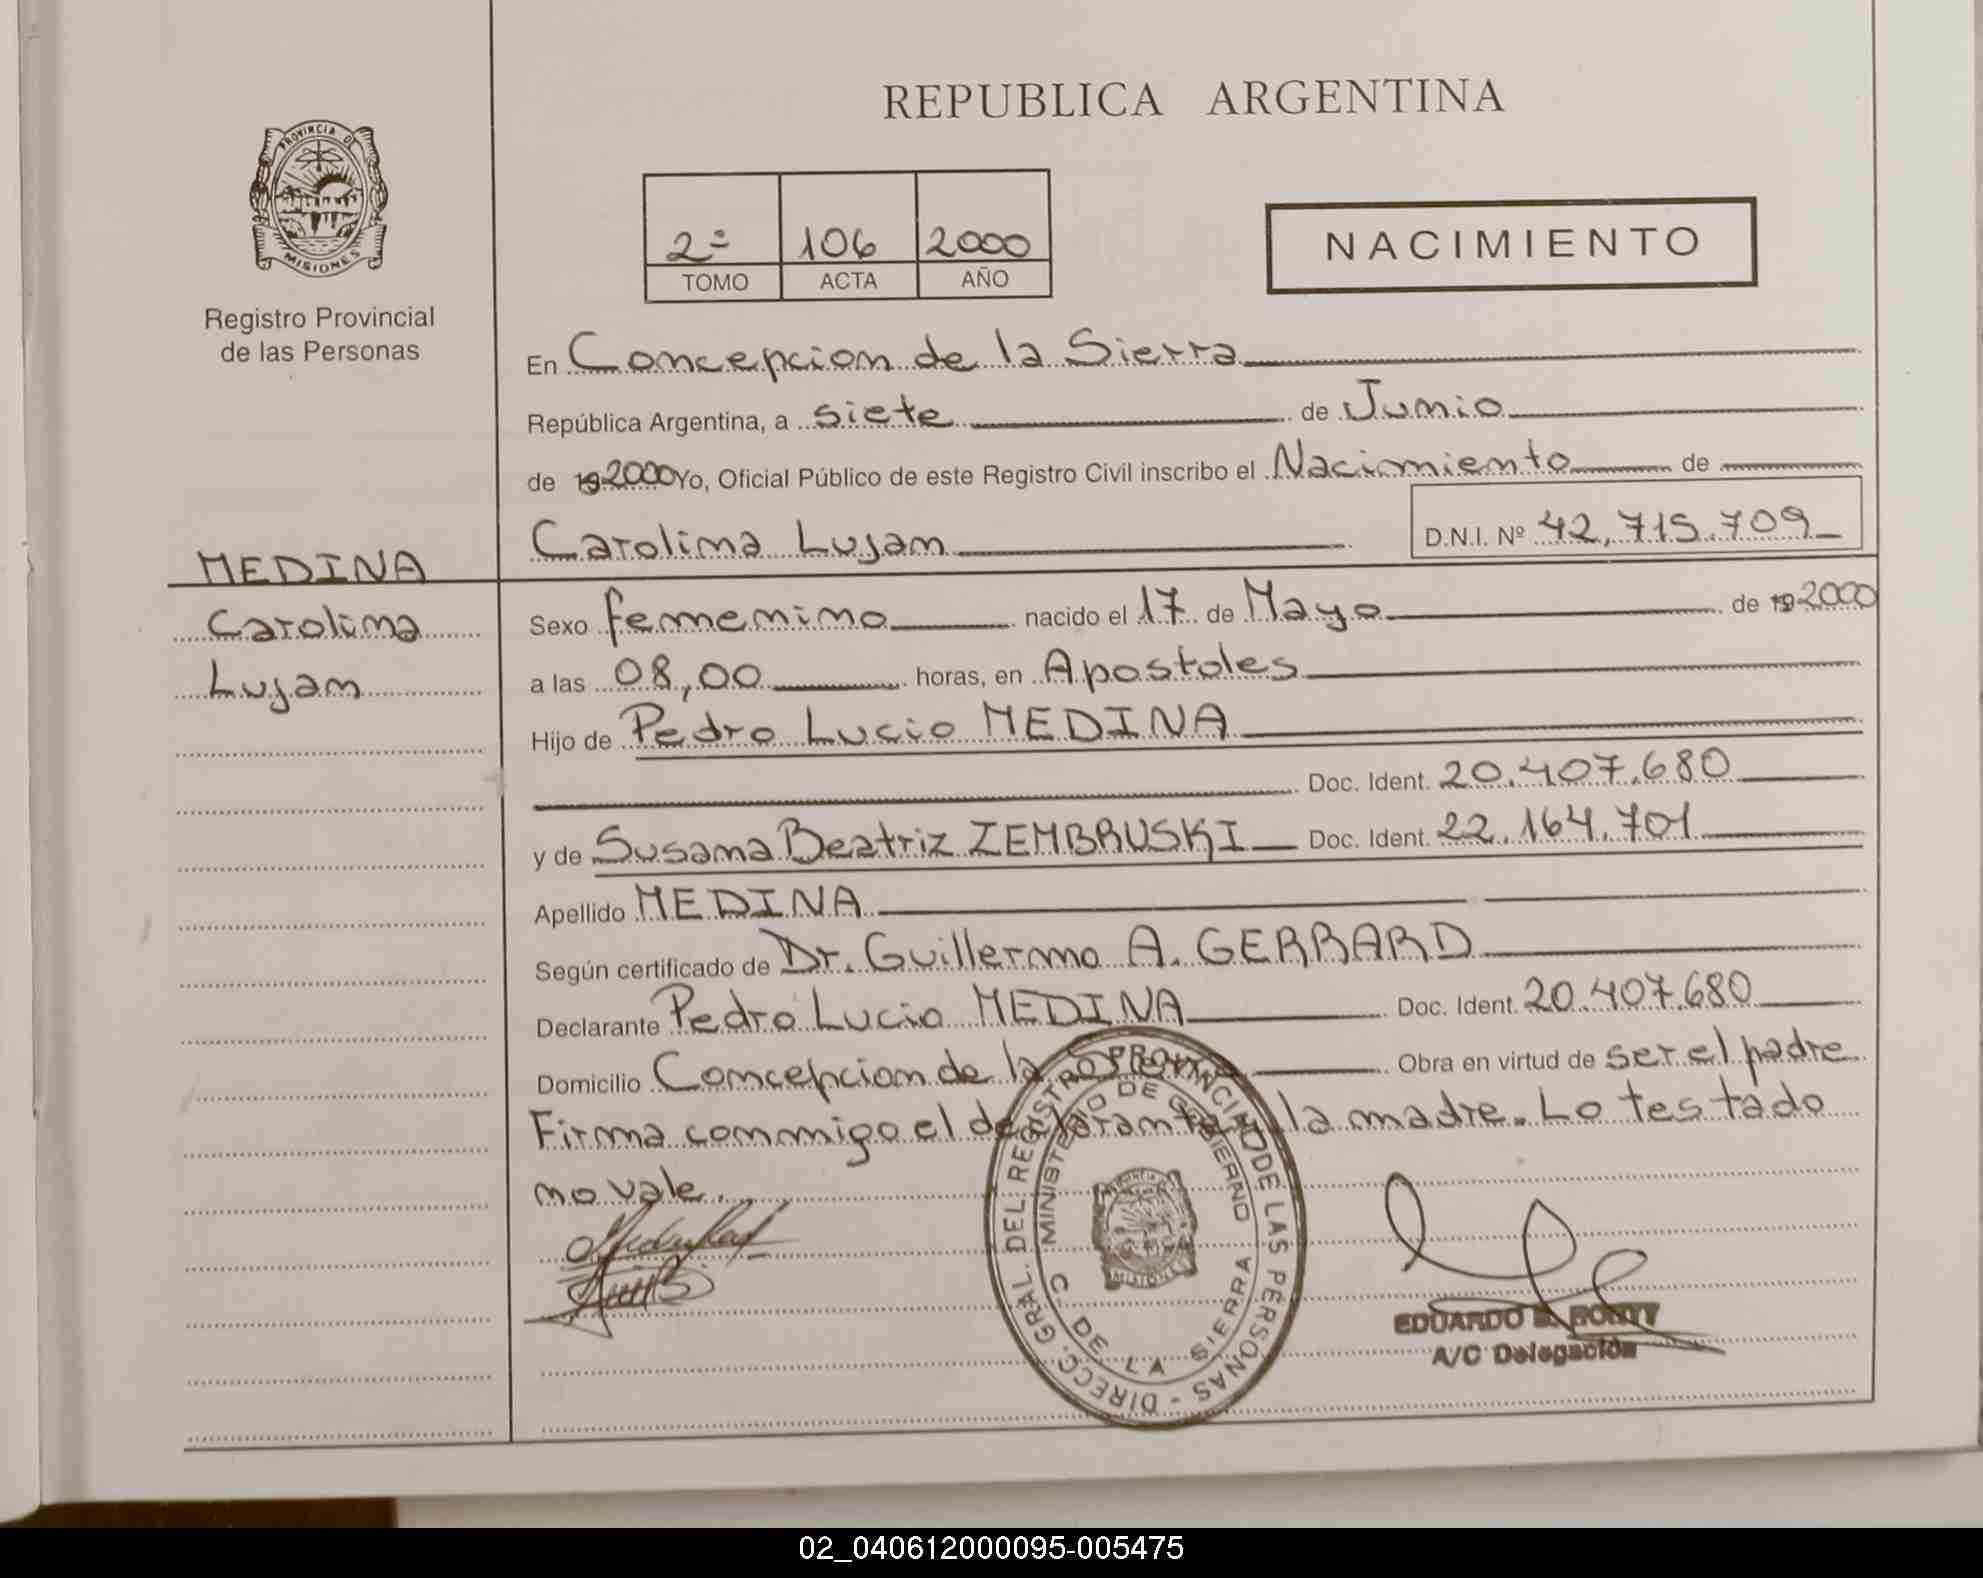 REPUBLICA ARGENTINA
PROVINCIA DE
MISIONES
Registro Provincial
de las Personas
2º 106 2000
TOMO ACTA AÑO
NACIMIENTO
En Concepcion de la Sierra
República Argentina, a siete de Junio
de 19 2000 Yo, Oficial Público de este Registro Civil inscribo el Nacimiento de
Carolina Lujan D.N.I. Nº 42,715.709
MEDINA
Carolina
Lujan
Sexo femenino nacido el 17 de Mayo de 19 2000
a las 08,00 horas, en Apostoles
Hijo de Pedro Lucio MEDINA
Doc. Ident. 20.407.680
y de Susana Beatriz ZEMBRUSKI Doc. Ident. 22.164.701
Apellido MEDINA
Según certificado de Dr. Guillermo A. GERRARD
Declarante Pedro Lucio MEDINA Doc. Ident. 20.407.680
Domicilio Concepcion de la Obra en virtud de ser el padre
Firma conmigo el declarante la madre. Lo testado
no vale.
DIRECC. GRAL. DEL REGISTRO PROVINCIAL DE LAS PERSONAS -
MINISTERIO DE GOBIERNO
C. DE LA SIERRA
MISIONES
EDUARDO
A/C Delegación
02_040612000095-005475